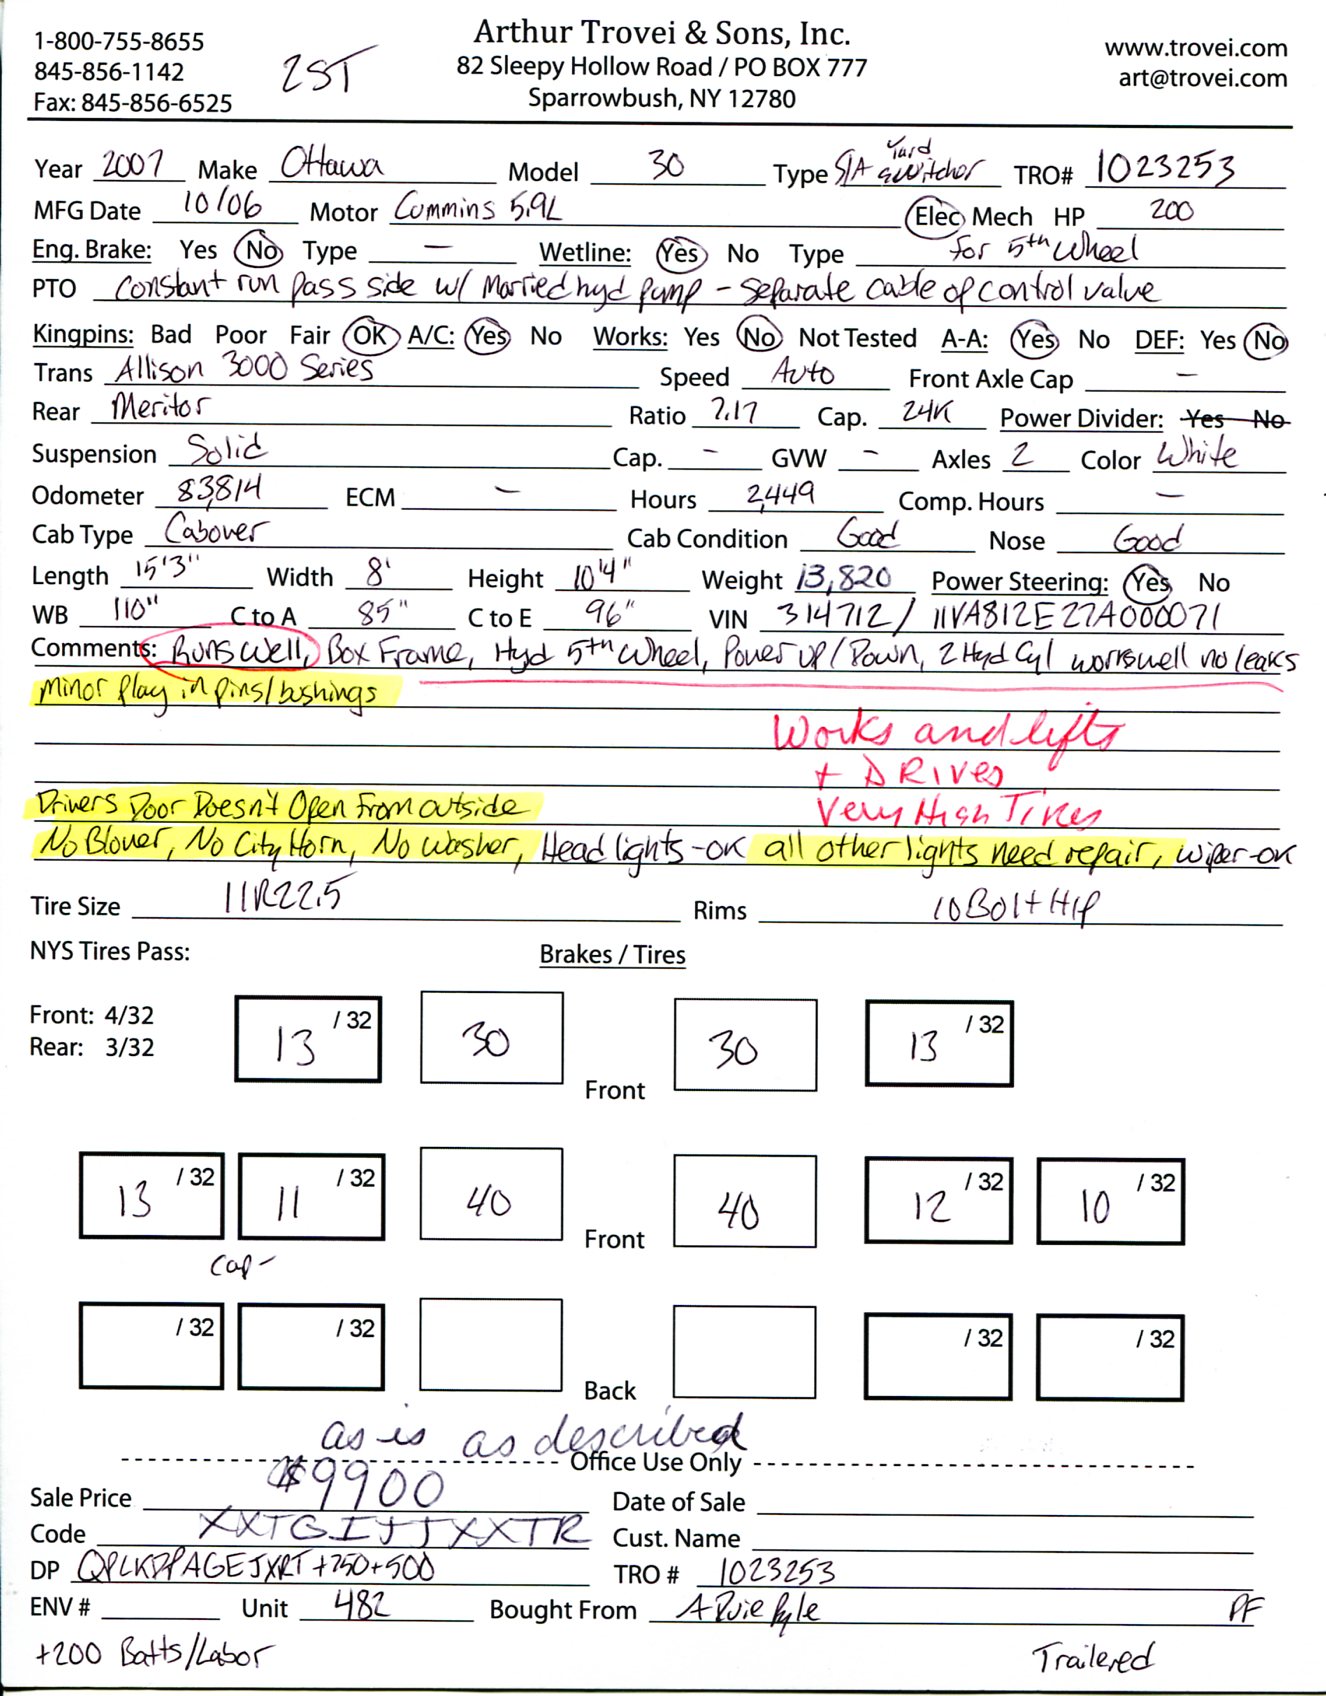 1-800-755-8655
845-856-1142
Fax: 845-856-6525
2ST
Arthur Trovei & Sons, Inc.
82 Sleepy Hollow Road / PO BOX 777
Sparrowbush, NY 12780
www.trovei.com
art@trovei.com
Year 2007 Make Ottawa Model 30 Type S/A Yard switcher TRO# 1023253
MFG Date 10/06 Motor Cummins 5.9L Elec Mech HP 200
Eng. Brake: Yes No Type — Wetline: Yes No Type for 5th wheel
PTO constant run pass side w/ Married hyd pump - separate cable op control valve
Kingpins: Bad Poor Fair OK A/C: Yes No Works: Yes No Not Tested A-A: Yes No DEF: Yes No
Trans Allison 3000 Series Speed Auto Front Axle Cap —
Rear Meritor Ratio 7.17 Cap. 24K Power Divider: Yes No
Suspension Solid Cap. — GVW — Axles 2 Color White
Odometer 83,814 ECM — Hours 2,449 Comp. Hours —
Cab Type Cabover Cab Condition Good Nose Good
Length 15'3" Width 8' Height 10'4" Weight 13,820 Power Steering: Yes No
WB 110" C to A 85" C to E 96" VIN 314712 / 11VA812E27A000071
Comments: Runs Well, Box Frame, Hyd 5th Wheel, Power up/Down, 2 Hyd Cyl works well no leaks
Minor play in pins/bushings
Works and lifts
+ DRIVES
Very High Tires
Drivers Door Doesn't Open From outside
No Blower, No City Horn, No washer, Head lights-OK all other lights need repair, wiper-OK
Tire Size 11R22.5 Rims 10 Bolt Hp
NYS Tires Pass: Brakes / Tires
Front: 4/32
Rear: 3/32
13 /32 30 Front 30 13 /32
13 /32 11 /32 40 Front 40 12 /32 10 /32
Cap-
/32 /32 Back /32 /32
as is as described
Office Use Only
Sale Price $9900 Date of Sale
Code XXTGIJJXXTR Cust. Name
DP QPLKDPAGEJXRT+250+500 TRO # 1023253
ENV # Unit 482 Bought From A Duie Pyle PF
+200 Batts/Labor Trailered